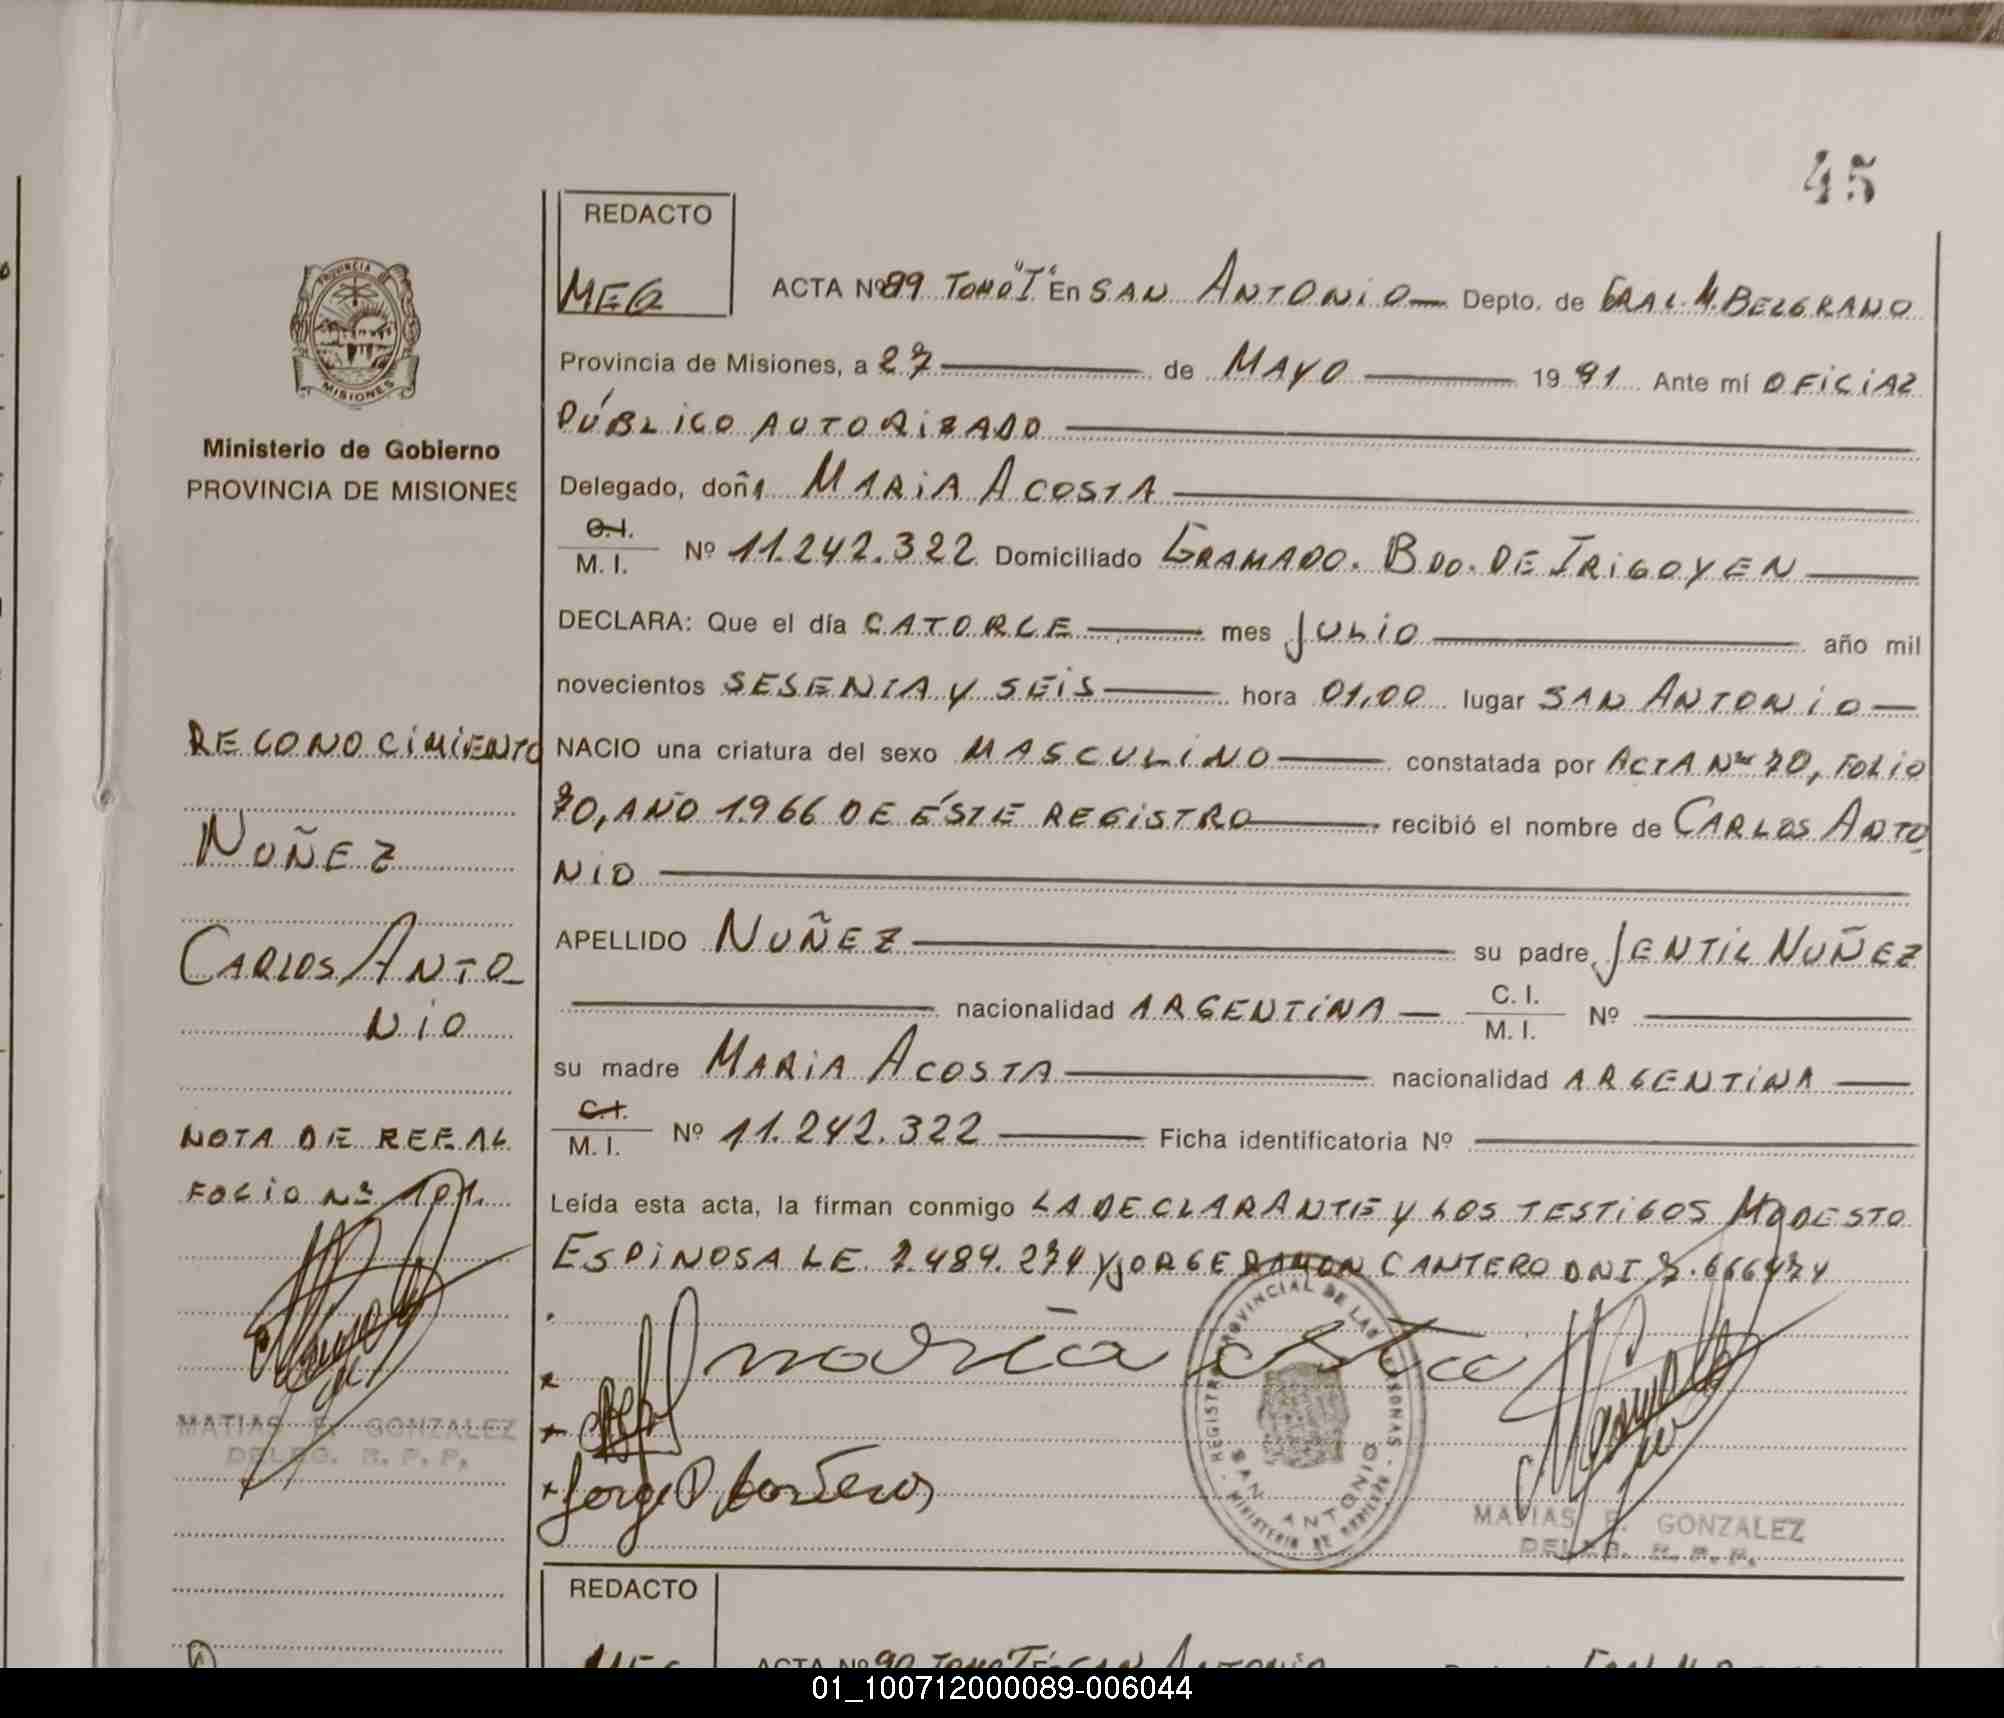 45
REDACTO
MEG
ACTA Nº 89 TOMO "I" En SAN ANTONIO Depto. de GRAL. M. BELGRANO
Provincia de Misiones, a 27 de MAYO 1991 Ante mí OFICIAL
PÚBLICO AUTORIZADO
Delegado, doña MARIA ACOSTA
C.I.
M. I. Nº 11.242.322 Domiciliado GRAMADO. BDO. DE IRIGOYEN
DECLARA: Que el día CATORCE mes JULIO año mil
novecientos SESENTA Y SEIS hora 01,00 lugar SAN ANTONIO
NACIO una criatura del sexo MASCULINO constatada por ACTA Nº 70, FOLIO
70, AÑO 1966 DE ÉSTE REGISTRO recibió el nombre de CARLOS ANTO
NIO
APELLIDO NUÑEZ su padre JENTIL NUÑEZ
nacionalidad ARGENTINA C. I.
M. I. Nº
su madre MARIA ACOSTA nacionalidad ARGENTINA
C.I.
M. I. Nº 11.242.322 Ficha identificatoria Nº
Leída esta acta, la firman conmigo LA DECLARANTE Y LOS TESTIGOS MODESTO
ESPINOSA LE 7.484.274 Y JORGE RAMON CANTERO DNI
maria
Jorge
REGISTRO PROVINCIAL DE LAS PERSONAS
SAN ANTONIO
MINISTERIO DE GOBIERNO
MATIAS E. GONZALEZ
DELEG. R. P. P.
PROVINCIA DE
MISIONES
Ministerio de Gobierno
PROVINCIA DE MISIONES
RECONOCIMIENTO
NUÑEZ
CARLOS ANTO
NIO
NOTA DE REF. AL
FOLIO Nº 101.
MATIAS E. GONZALEZ
DELEG. R. P. P.
REDACTO
MEG
ACTA Nº 90 TOMO "I" SAN ANTONIO
01_100712000089-006044